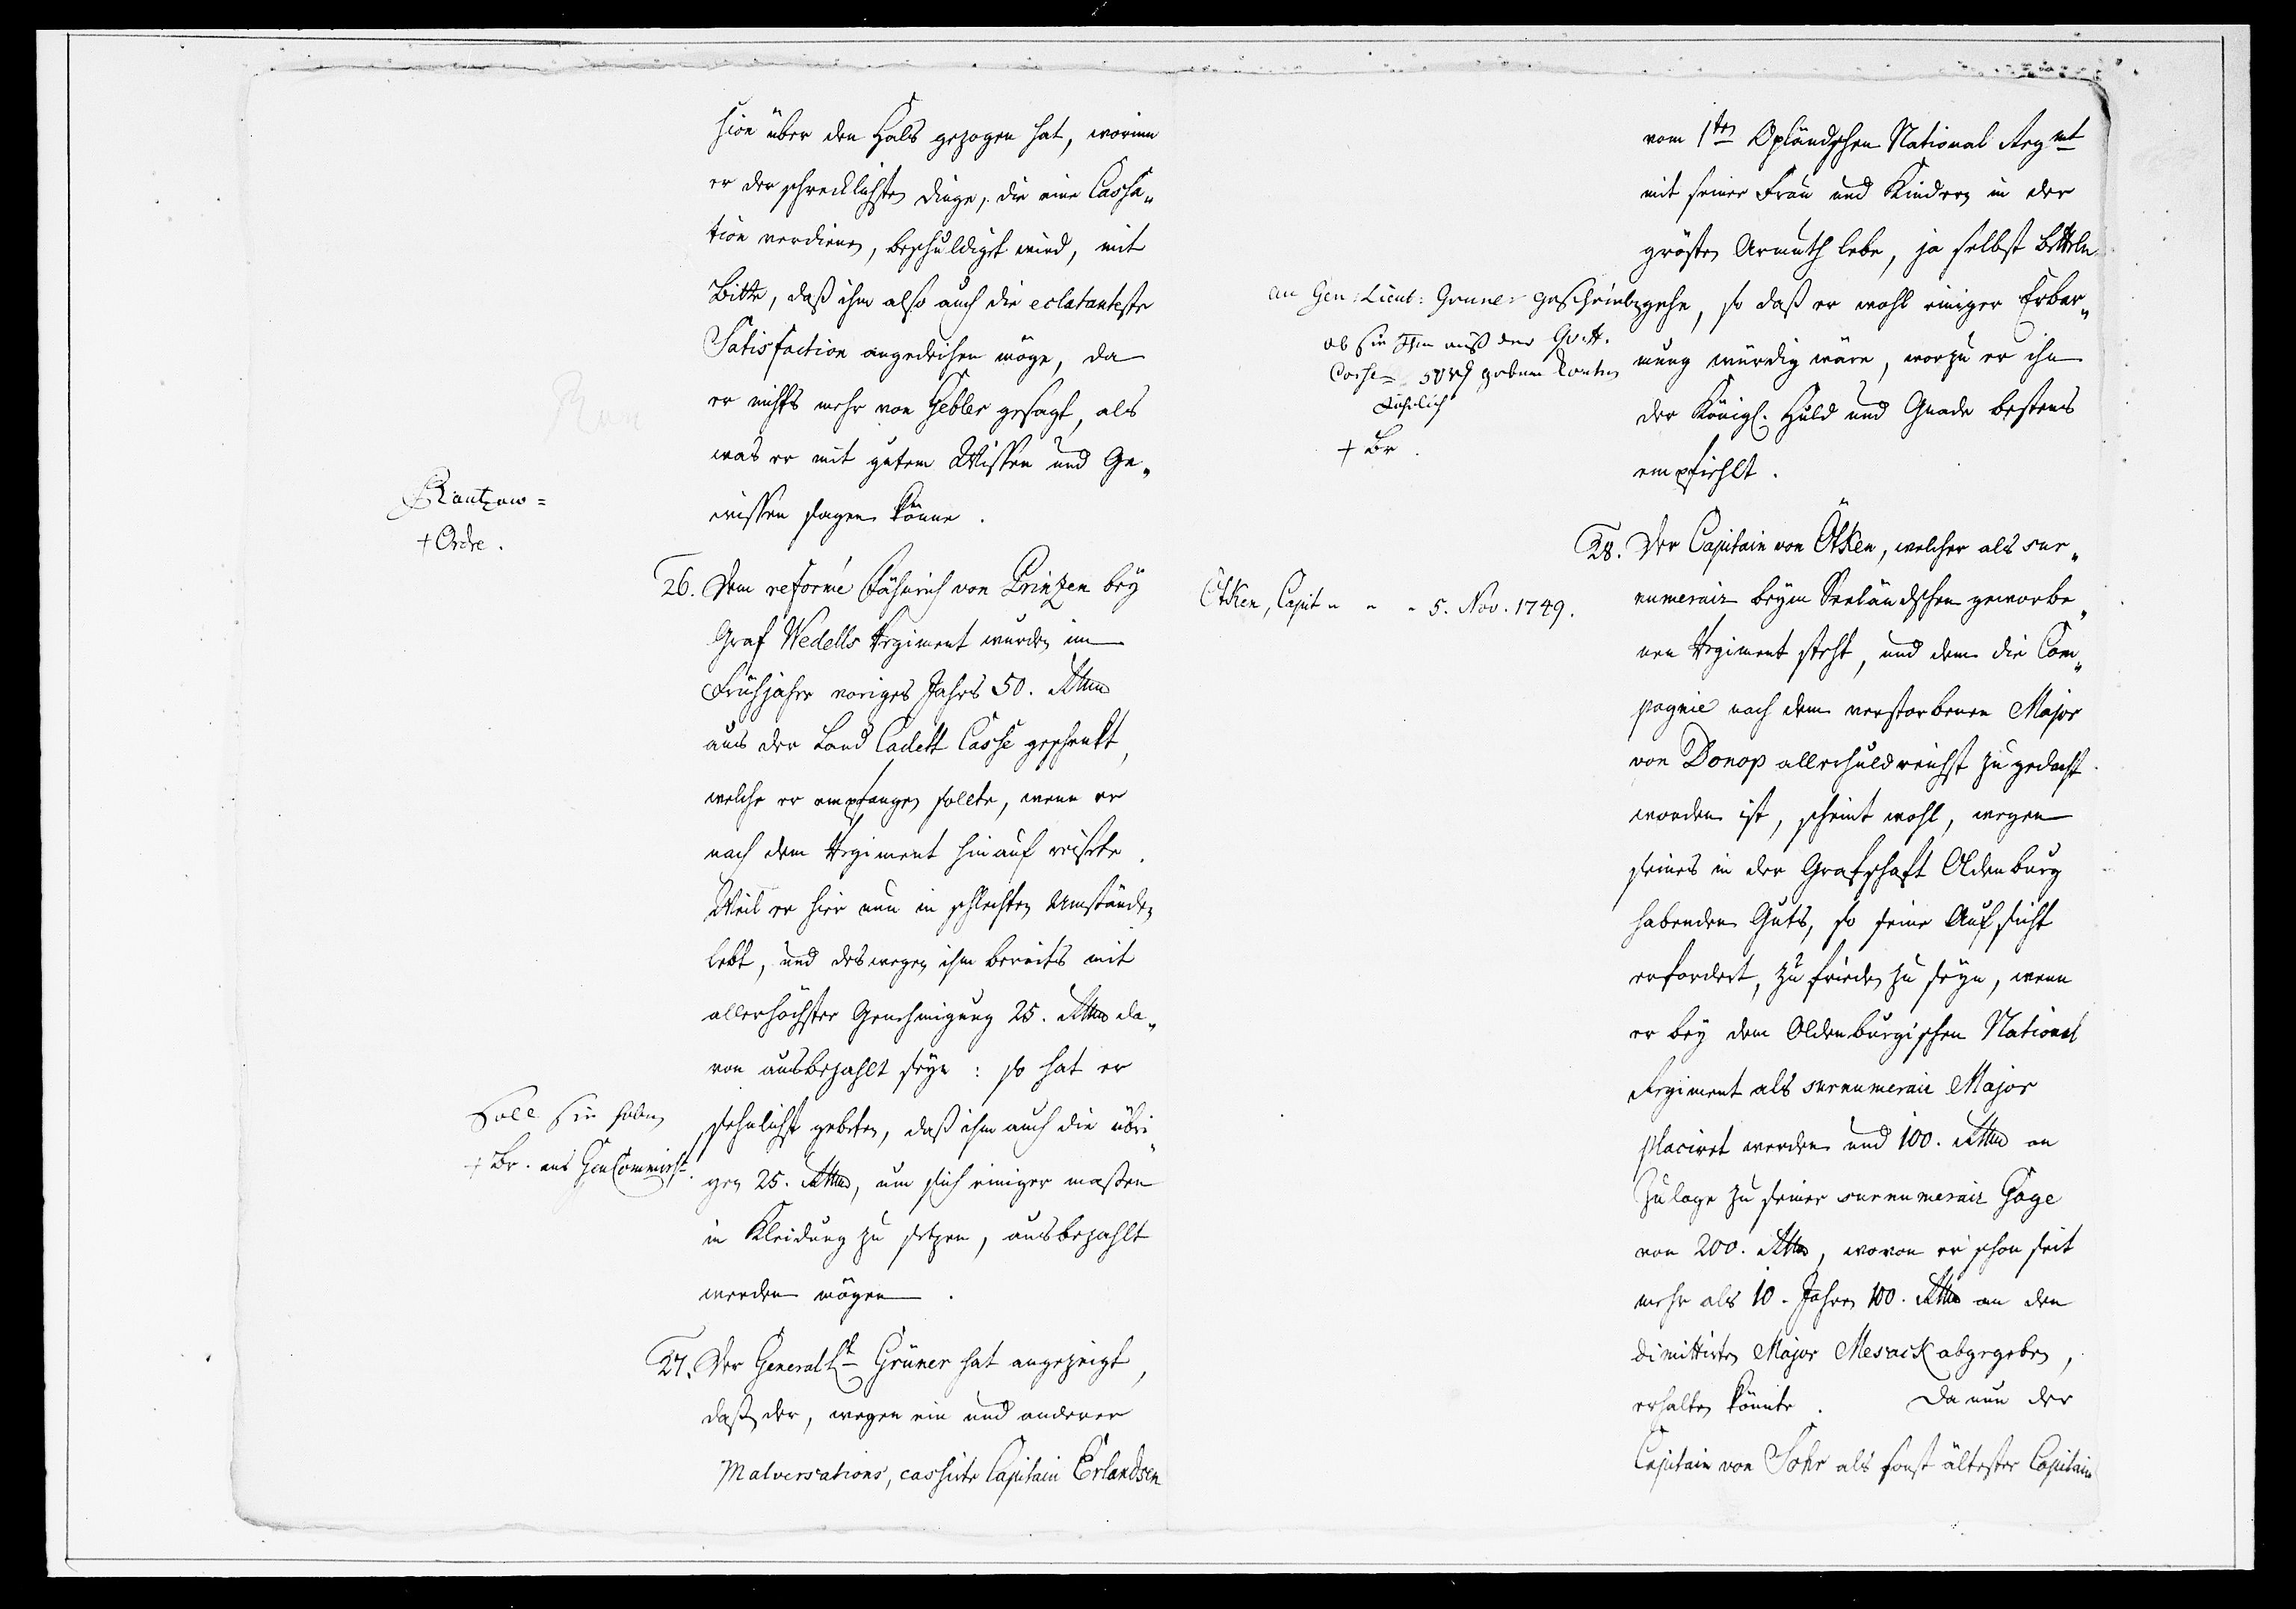 sion über den Hals gezogen hat, worinn
er der schrecklichsten Dinge, die eine Cassa„
tion verdienen, beschuldigt wird, mit
Bitte, daß ihm also auch die eclatanteste
Satisfaction angedeihen möge, da
er nichts mehr von Gebler gesagt, als
was er mit gutem Wissen und Ge„
wissen sagen könne.
Rantzow =
+ Ordre.
26. Dem reformé Fähnrich von Prinzen bey
Graf Wedells Regiment wurden im
Frühjahre voriges Jahrs 50. Rthlr
aus der Land Cadett Casse geschenkt,
welche er empfangen sollte, wenn er
nach dem Regiment hinauf reisete.
Weil er hier nun in schlechten Umständen
lebt, und deswegen ihm bereits mit
allerhöchster Genehmigung 25. Rthlr da„
von ausbezahlt seyn: so hat er
sehnlichst gebeten, daß ihm auch die übri„
gen 25. Rthlr, um sich einiger maßen
in Kleidung zu setzen, ausbezahlt
werden mögen.
Soll sie haben
+ Br. ans GenCommiss:
27. Der GeneralLt Grüner hat angezeigt,
daß der, wegen ein und anderer
Malversations, cassirte Capitain Erlandsen
vom 1ten Opländschen National Regmt
mit seiner Frau und Kindern in der
grösten Armuth lebe, ja selbst betteln
gehe, so daß er wohl einiger Erbar„
mung würdig wäre, worzu er ihn
der Königl. Huld und Gnade bestens
empfiehlt.
an Gen: Lieut: Gruner geschrieben
ob sie Ihm aus der Qvest.
Casse 50 rd geben konten
Jährlich
+ Br.
28. Der Capitain von Ötken, welcher als sur„
numerair beym Seeländschen geworbe„
nen Regiment steht, und dem die Com„
pagnie nach dem verstorbenen Major
von Donop allerhuldreichst zugedacht
worden ist, scheint wohl, wegen
seines in der Grafschaft Oldenburg
habenden Guts, so seine Aufsicht
erfordert, zufrieden zu seyn, wenn
er bey dem Oldenburgischen National
Regiment als surnumerair Major
placiret werden und 100. Rthlr an
Zulage zu seiner surnumerair Gage
von 200. Rthlr, wovon er schon seit
mehr als 10. Jahren 100. Rthlr an den
dimittirten Major Mesack abgegeben,
erhalten könnte. Da nun der
Capitain von Sohr als sonst ältester Capitain
Ötken, Capit „ „ „ 5. Nov. 1749.